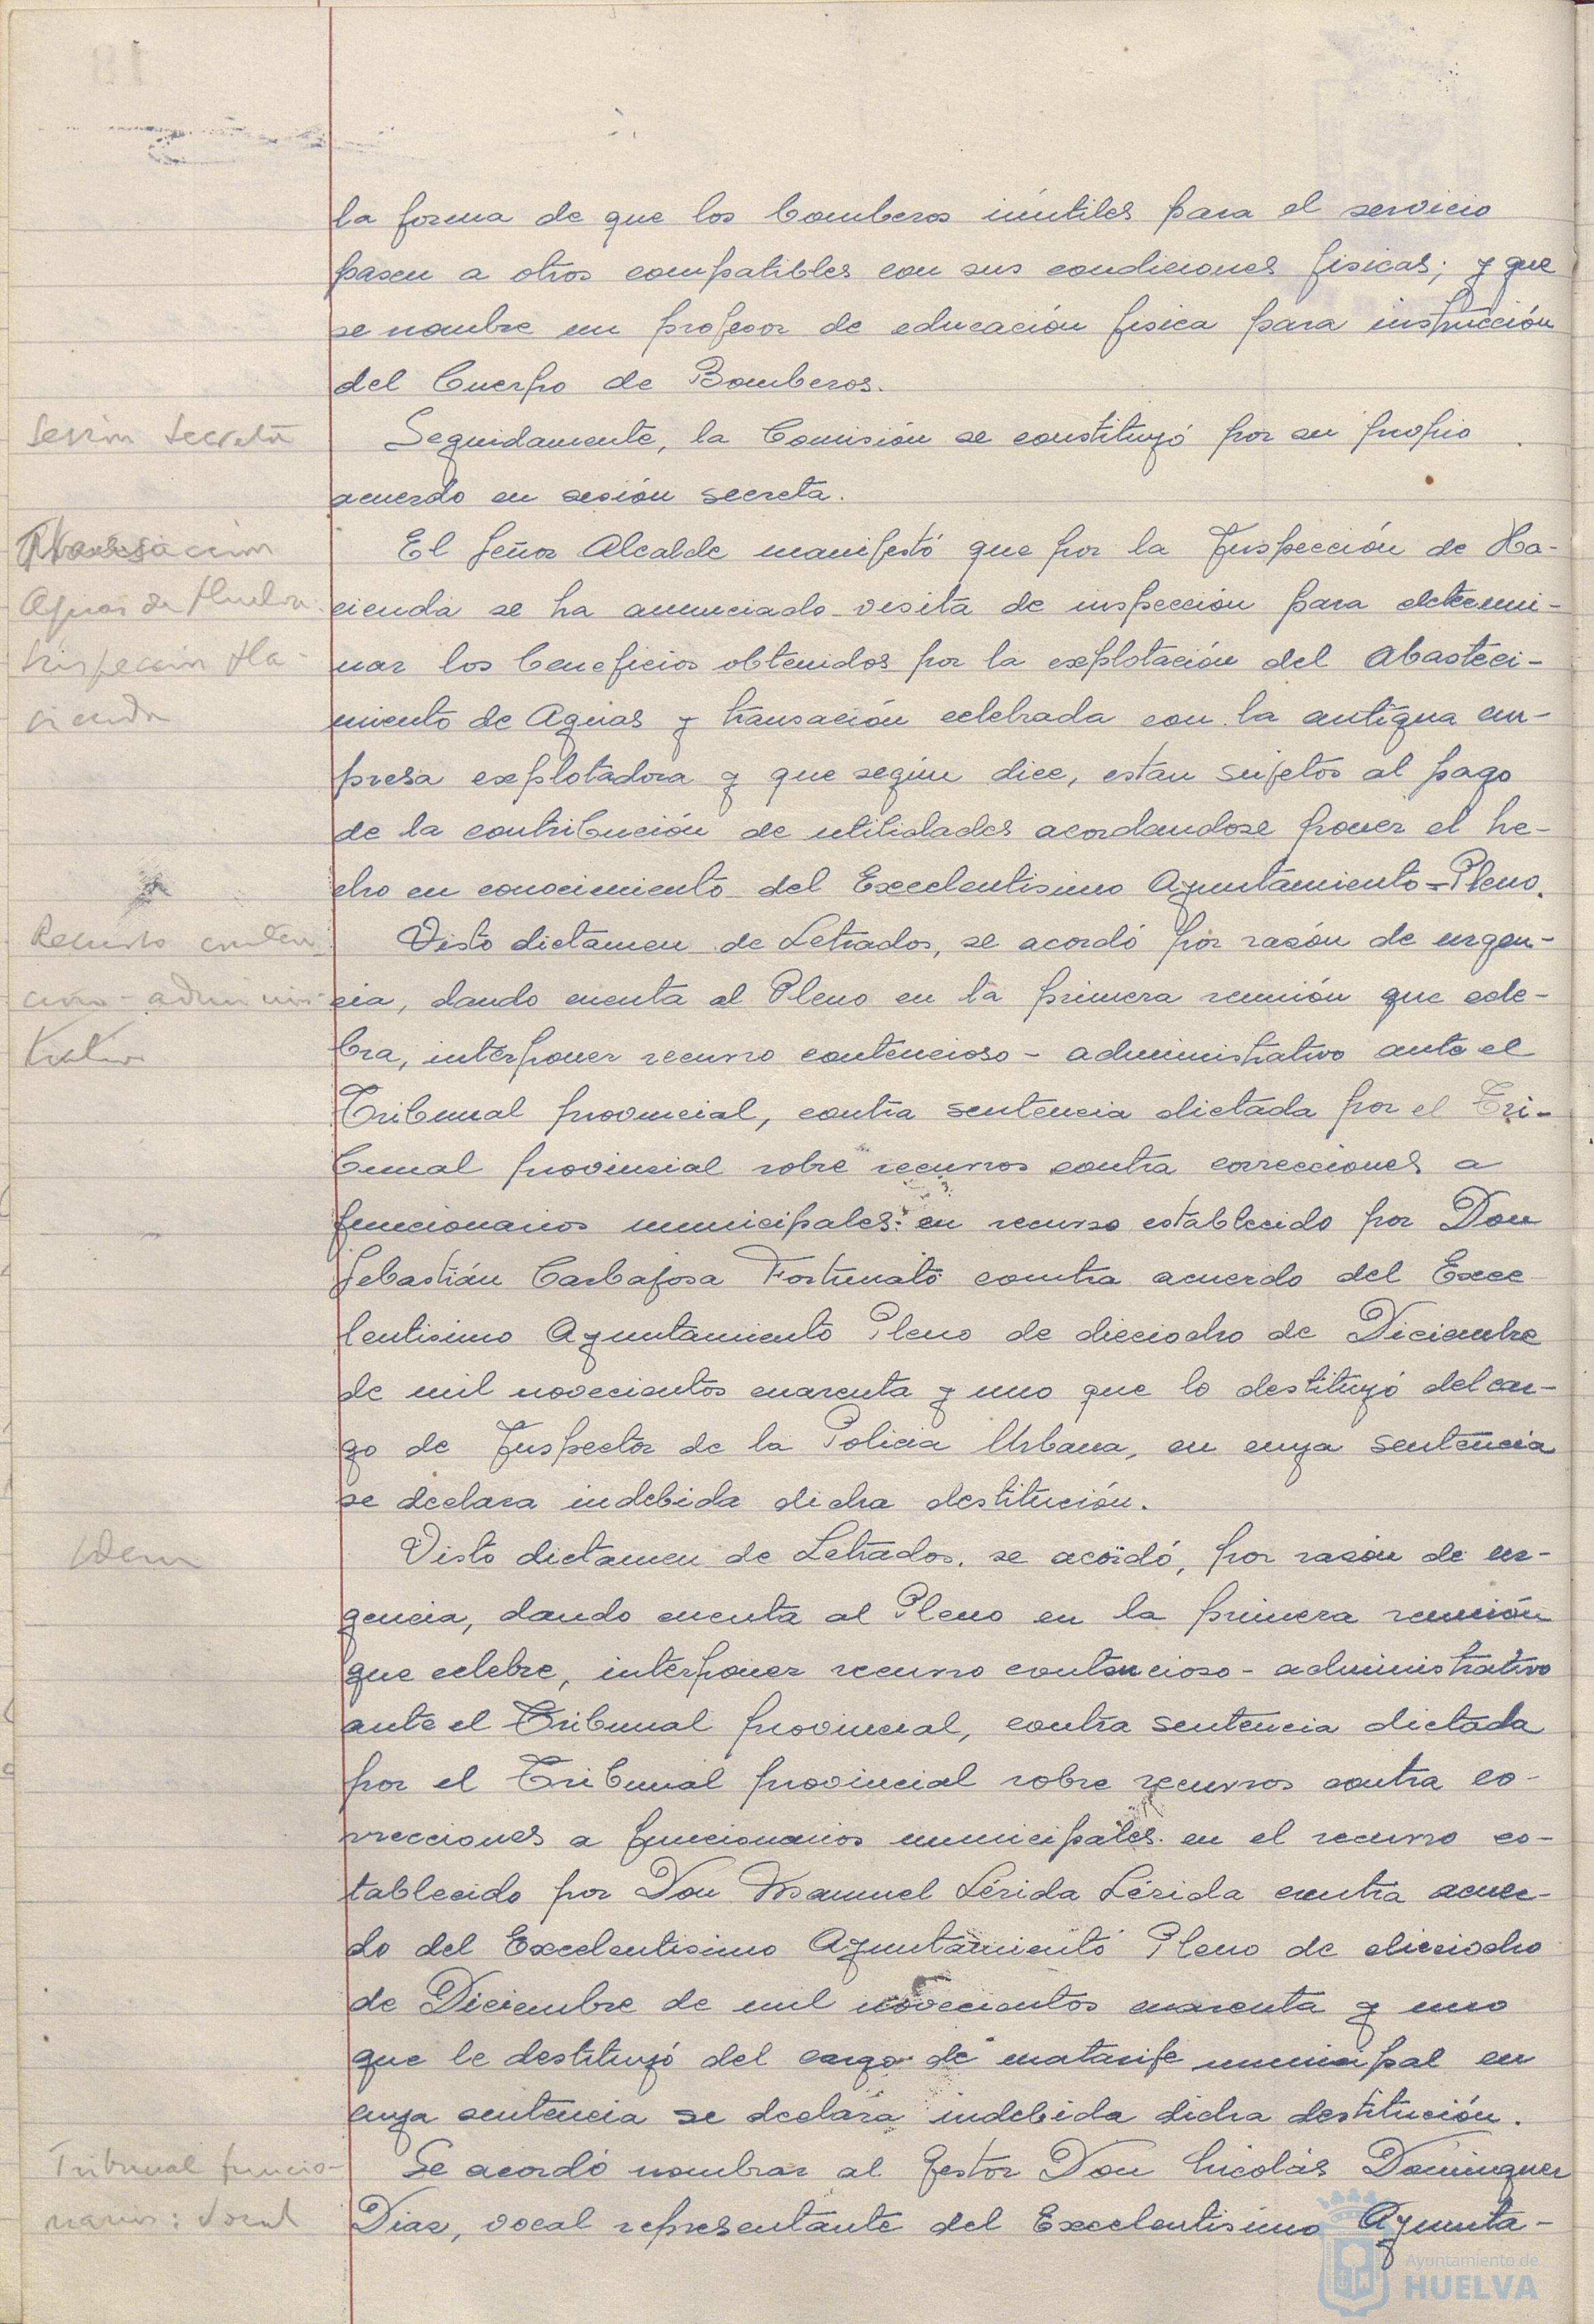 la forma de que los bomberos inútiles para el servicio
pasen a otros compatibles con sus condiciones fisicas; y que
se nombre un profesor de educación fisica para instrucción
del Cuerpo de Bomberos.
Sesion secreta
Seguidamente, la Comisión se constituyó por su propio
acuerdo en sesión secreta.
Transacion
Aguas de Huelva.
Inspeccion Ha-
cienda
El Señor Alcalde manifestó que por la Inspección de Ha-
cienda se ha anunciado visita de inspección para determi-
nar los beneficios obtenidos por la explotación del Abasteci-
miento de Aguas y transación celebrada con la antigua em-
presa explotadora y que según dice, estan sujetos al pago
de la contribución de utilidades acordandose poner el he-
cho en conocimiento del Excelentisimo Ayuntamiento=Pleno.
Recurso conten
cioso-adminis-
trativo
Visto dictamen de Letrados, se acordó por razón de urgen-
cia, dando cuenta al Pleno en la primera reunión que cele-
bra, interponer recurso contencioso-administrativo ante el
Tribunal provincial, contra sentencia dictada por el Tri-
bunal provincial sobre recursos contra correcciones a
funcionarios municipales en recurso establecido por Don
Sebastián Carbajosa Fortunato contra acuerdo del Exce-
lentisimo Ayuntamiento Pleno de dieciocho de Diciembre
de mil novecientos cuarenta y uno que lo destituyó del car-
go de Inspector de la Policia Urbana, en cuya sentencia
se declara indebida dicha destitución.
Idem
Visto dictamen de Letrados, se acordó, por razón de ur-
gencia, dando cuenta al Pleno en la primera reunión
que celebre, interponer recurso contencioso-administrativo
ante el Tribunal provincial, contra sentencia dictada
por el Tribunal provincial sobre recursos contra co-
rrecciones a funcionarios municipales en el recurso es-
tablecido por Don Manuel Lérida Lérida contra acuer-
do del Excelentisimo Ayuntamiento Pleno de dieciocho
de Diciembre de mil novecientos cuarenta y uno
que le destituyó del cargo de matarife municipal en
cuya sentencia se declara indebida dicha destitución.
Tribunal funcio-
narios: Vocal
Se acordó nombrar al Gestor Don Nicolás Dominguez
Diaz, vocal representante del Excelentisimo Ayunta-
Ayuntamiento de
HUELVA